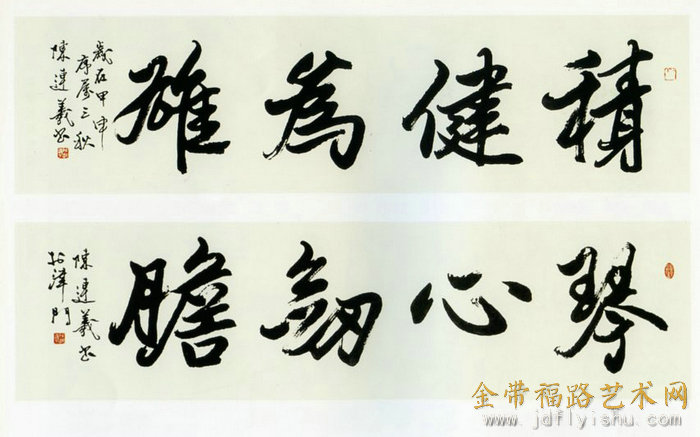 積健為雄
歲在甲申
序屬三秋
陳連羲書
琴心劒膽
陳連羲書
於津門
金带福路艺术网
www.jdflyishu.com